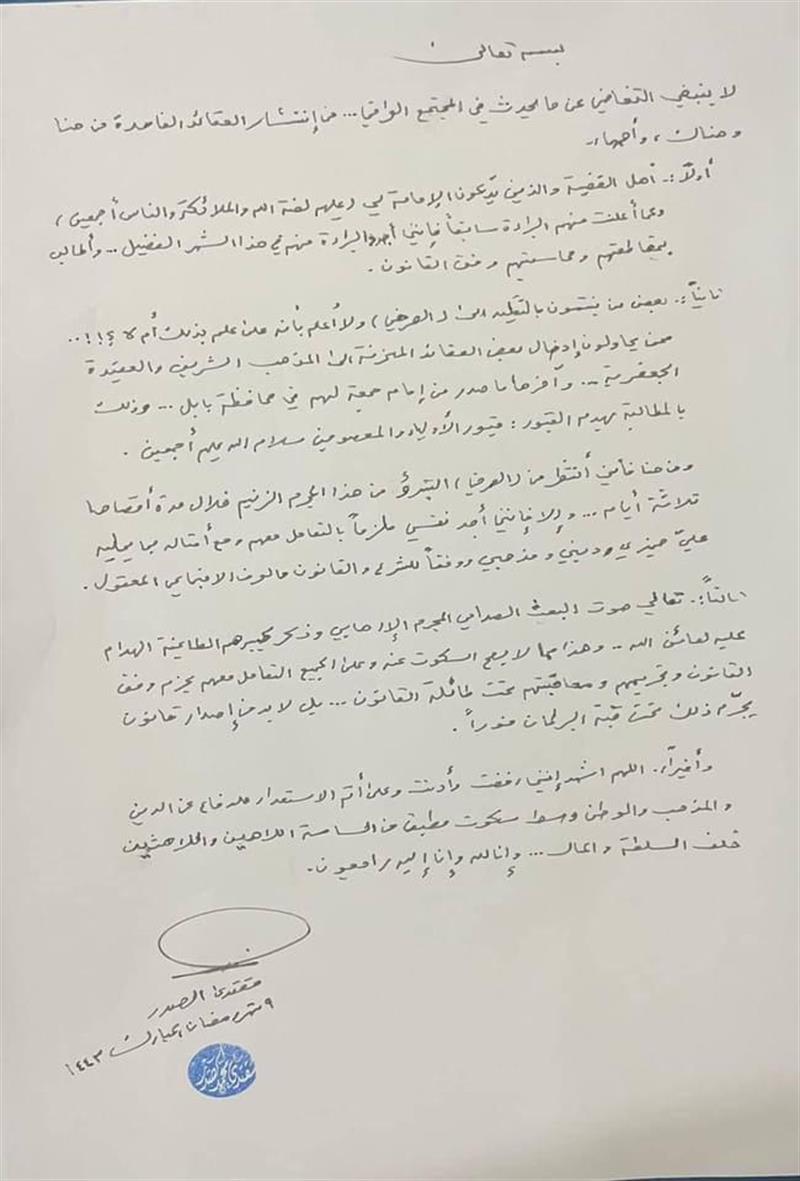 بسمه تعالى
لا ينبغي التغاضي عن ما يحدث في المجتمع العراقي... من إنتشار العقائد الفاسدة من هنا
وهناك، وأهمها:
أولاً:. أهل القضية والذين يدّعون الإمامة لي (عليهم لعنة الله والملائكة والناس أجمعين)،
وكما أعلنت منهم البراءة سابقاً فإنني أجدد البراءة منهم في هذا الشهر الفضيل.. وأطالب
بمقاطعتهم ومحاسبتهم وفق القانون.
ثانياً:. بعض من ينتمون بالتقليد الى (الصرخي) ولا أعلم بأنه على علم بذلك أم لا ؟!!..
ممن يحاولون إدخال بعض العقائد المنحرفة الى المذهب الشريف والعقيدة
الجعفرية... وآخرها ما صدر من إمام جمعة لهم في محافظة بابل... وذلك
بالمطالبة بهدم القبور: قبور الأولياء والمعصومين سلام الله عليهم أجمعين.
ومن هنا فإنني أنتظر من (الصرخي) التبرؤ من هذا المجرم الزنيم خلال مدة أقصاها
ثلاثة أيام... وإلا فإنني أجد نفسي ملزماً بالتعامل معهم ومع أمثاله بما يمليه
عليّ ضميري وديني ومذهبي ووفقاً للشرع والقانون والعرف الاجتماعي المعقول.
ثالثاً:. تعالي صوت البعث الصدامي المجرم الإرهابي وذكر كبيرهم الطاغية الهدام
عليه لعائن الله.. وهذا مما لا يصح السكوت عنه وعلى الجميع التعامل معهم بحزم وفق
القانون وتجريمهم ومعاقبتهم تحت طائلة القانون... بل لا بد من إصدار قانون
يجرّم ذلك تحت قبة البرلمان فوراً.
وأخيراً:. اللهم اشهد إنني رفضت وأدنت وعلى أتم الاستعداد للدفاع عن الدين
والمذهب والوطن وسط سكوت مطبق من الساسة اللاهين واللاهثين
خلف السلطة والمال... وإنا لله وإنا إليه راجعون.
مقتدى الصدر
٩ شهر رمضان المبارك ١٤٤٣